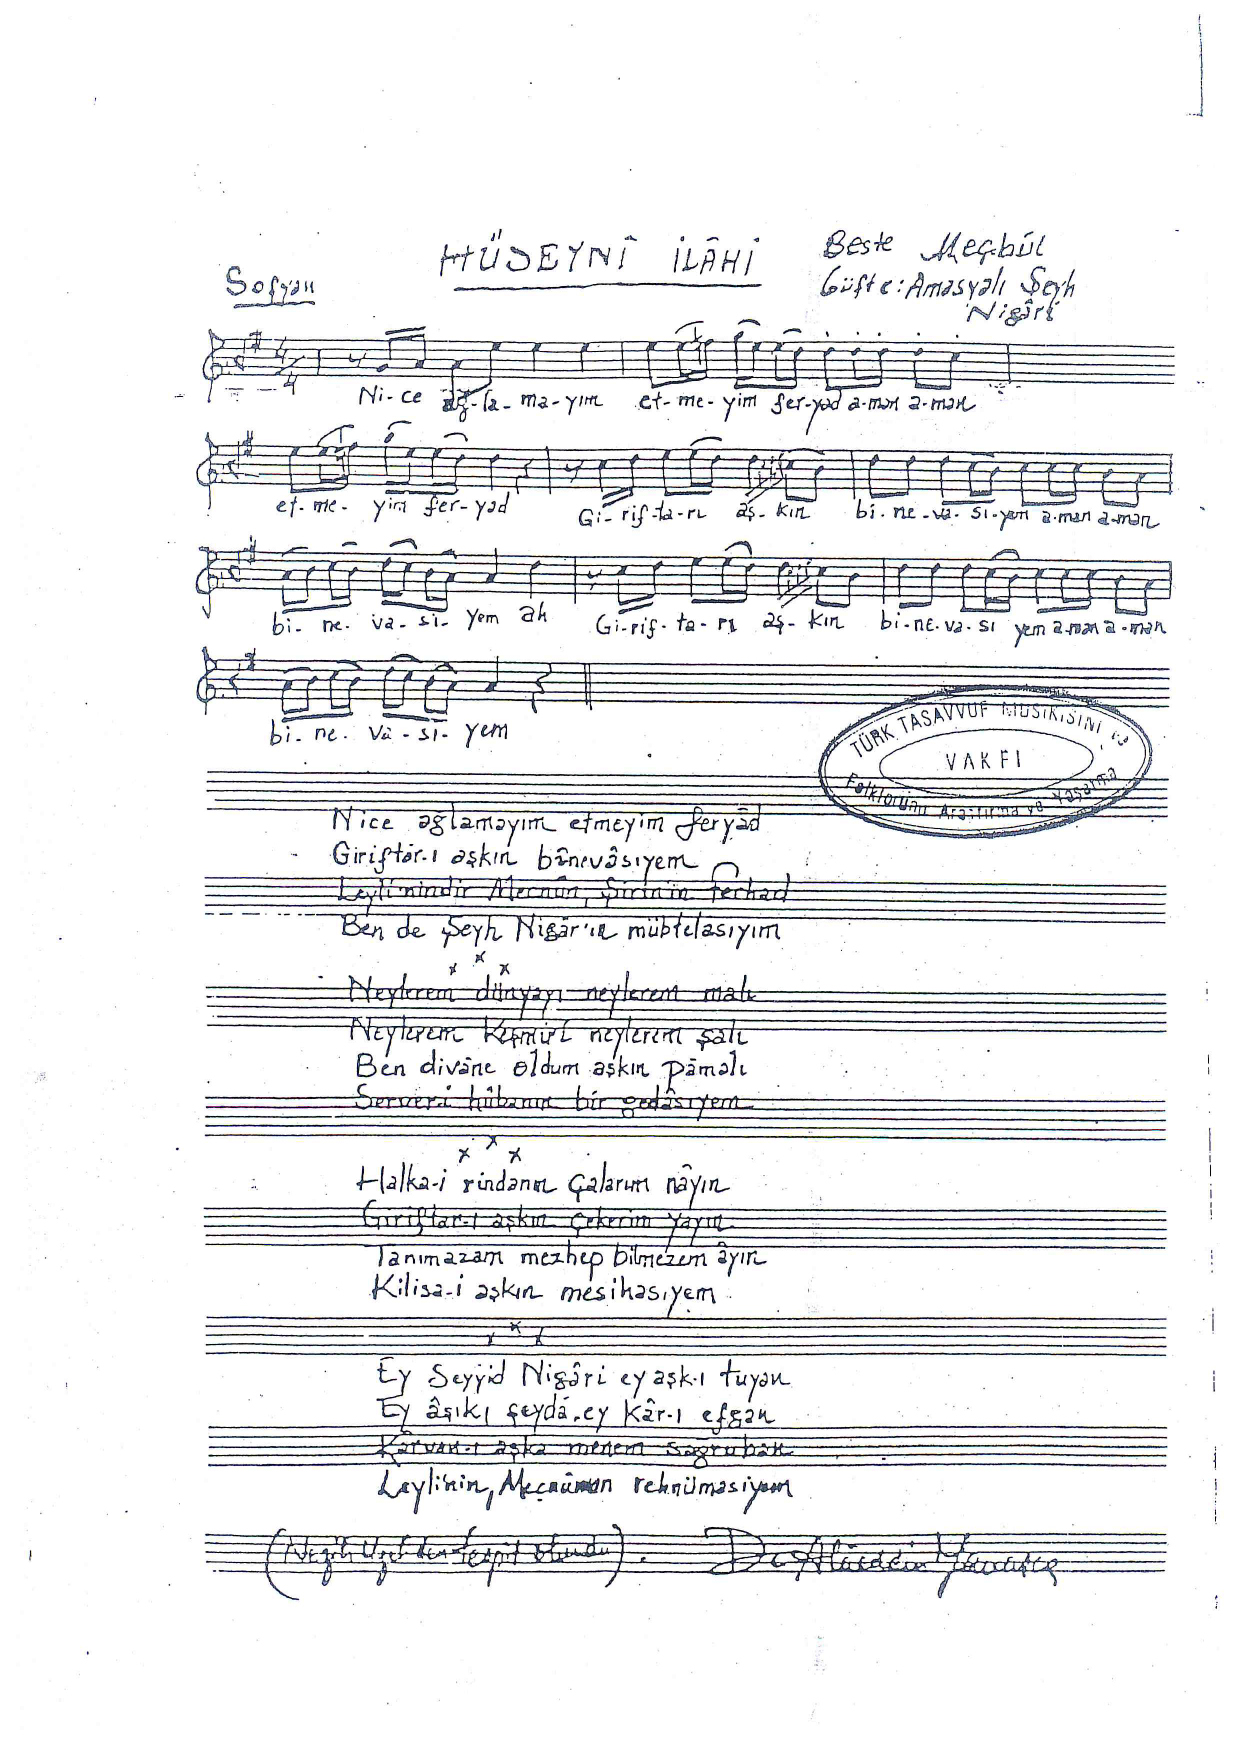 HÜSEYNÎ İLÂHİ
Beste Meçhûl
Sofyan
Güfte: Amasyalı Şeyh
Nigârî
4
4
Ni-ce ağ-la-ma-yım et-me-yim fer-yad a-man a-man
et-me-yim fer-yad Gi-rif-ta-rı aş-kın bi-ne-va-sı-yem a-man a-man
bi-ne-va-si-yem ah Gi-rif-ta-rı aş-kın bi-ne-va-sı yem a-man a-man
bi-ne-va-si-yem
TÜRK TASAVVUF MUSİKİSİNİ ve
VAKFI
Folklorunu Araştırma ve Yaşatma
Nice ağlamayım etmeyim feryâd
Giriftâr-ı aşkın bînevâsıyem
Leylî'nindir Mecnûn, Şirinin Ferhad
Ben de Şeyh Nigâr'ın mübtelasıyım
x x x
Neylerem dünyayı neylerem malı
Neylerem Keşmirî neylerem şalı
Ben divâne oldum aşkın pâmalı
Server-i hûbanın bir gedâsıyem
x x x
Halka-i rindanın çalarım nâyın
Giriftar-ı aşkın çekerim yayın
Tanımazam mezhep bilmezem âyin
Kilisa-i aşkın mesihasıyem
x x x
Ey Seyyid Nigâri ey aşk-ı tuyan
Ey âşıkı şeydâ, ey kâr-ı efgan
Kârvan-ı aşka menem sağruban
Leylî'nin, Mecnûnun rehnümasiyem
tespit olundu). Dr. Alâeddin Yavaşça